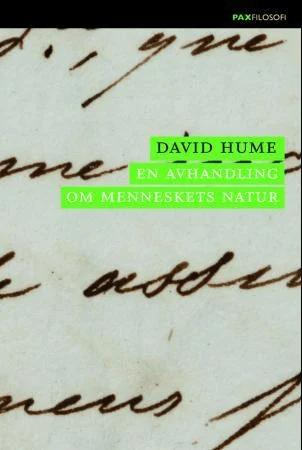 PAXFILOSOFI
d., que
DAVID HUME
EN AVHANDLING
OM MENNESKETS NATUR